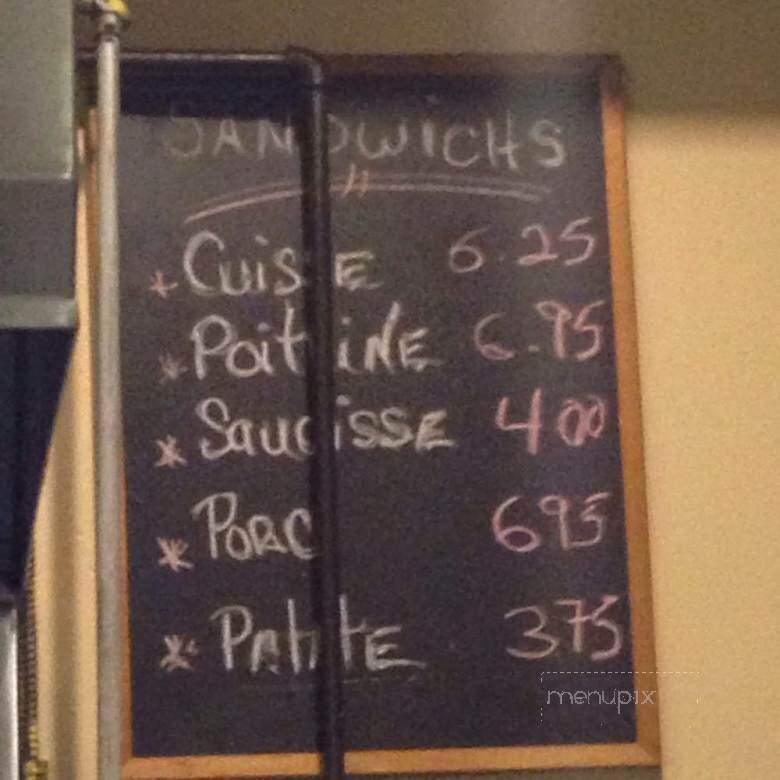 SANDWICHS
* Cuisse 6.25
* Poitrine 6.95
* Saucisse 4.00
* Porc 6.95
* Patate 3.75
menupix